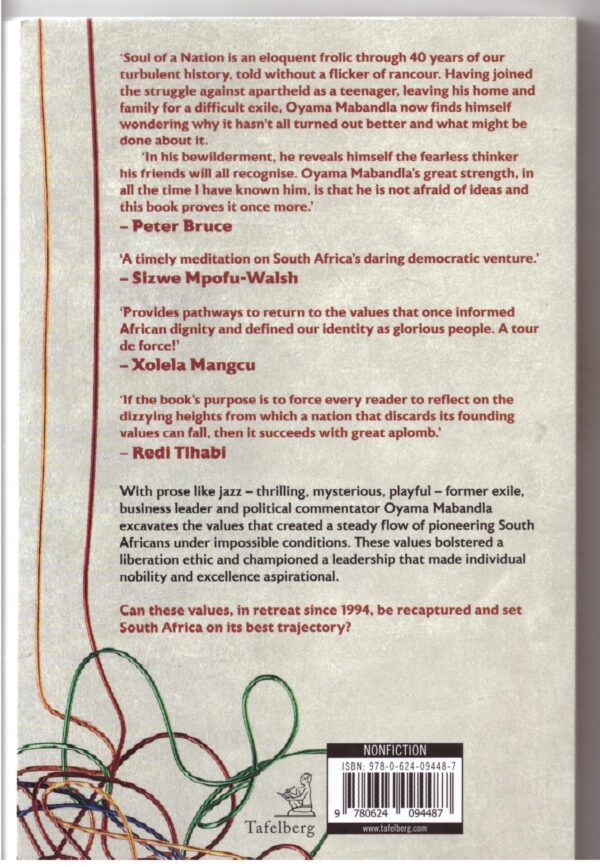 ‘Soul of a Nation is an eloquent frolic through 40 years of our
turbulent history, told without a flicker of rancour. Having joined
the struggle against apartheid as a teenager, leaving his home and
family for a difficult exile, Oyama Mabandla now finds himself
wondering why it hasn’t all turned out better and what might be
done about it.
‘In his bewilderment, he reveals himself the fearless thinker
his friends will all recognise. Oyama Mabandla’s great strength, in
all the time I have known him, is that he is not afraid of ideas and
this book proves it once more.’
– Peter Bruce
‘A timely meditation on South Africa’s daring democratic venture.’
– Sizwe Mpofu-Walsh
‘Provides pathways to return to the values that once informed
African dignity and defined our identity as glorious people. A tour
de force!’
– Xolela Mangcu
‘If the book’s purpose is to force every reader to reflect on the
dizzying heights from which a nation that discards its founding
values can fall, then it succeeds with great aplomb.’
– Redi Tlhabi
With prose like jazz – thrilling, mysterious, playful – former exile,
business leader and political commentator Oyama Mabandla
excavates the values that created a steady flow of pioneering South
Africans under impossible conditions. These values bolstered a
liberation ethic and championed a leadership that made individual
nobility and excellence aspirational.
Can these values, in retreat since 1994, be recaptured and set
South Africa on its best trajectory?
NONFICTION
ISBN: 978-0-624-09448-7
9 780624 094487
www.tafelberg.com
Tafelberg